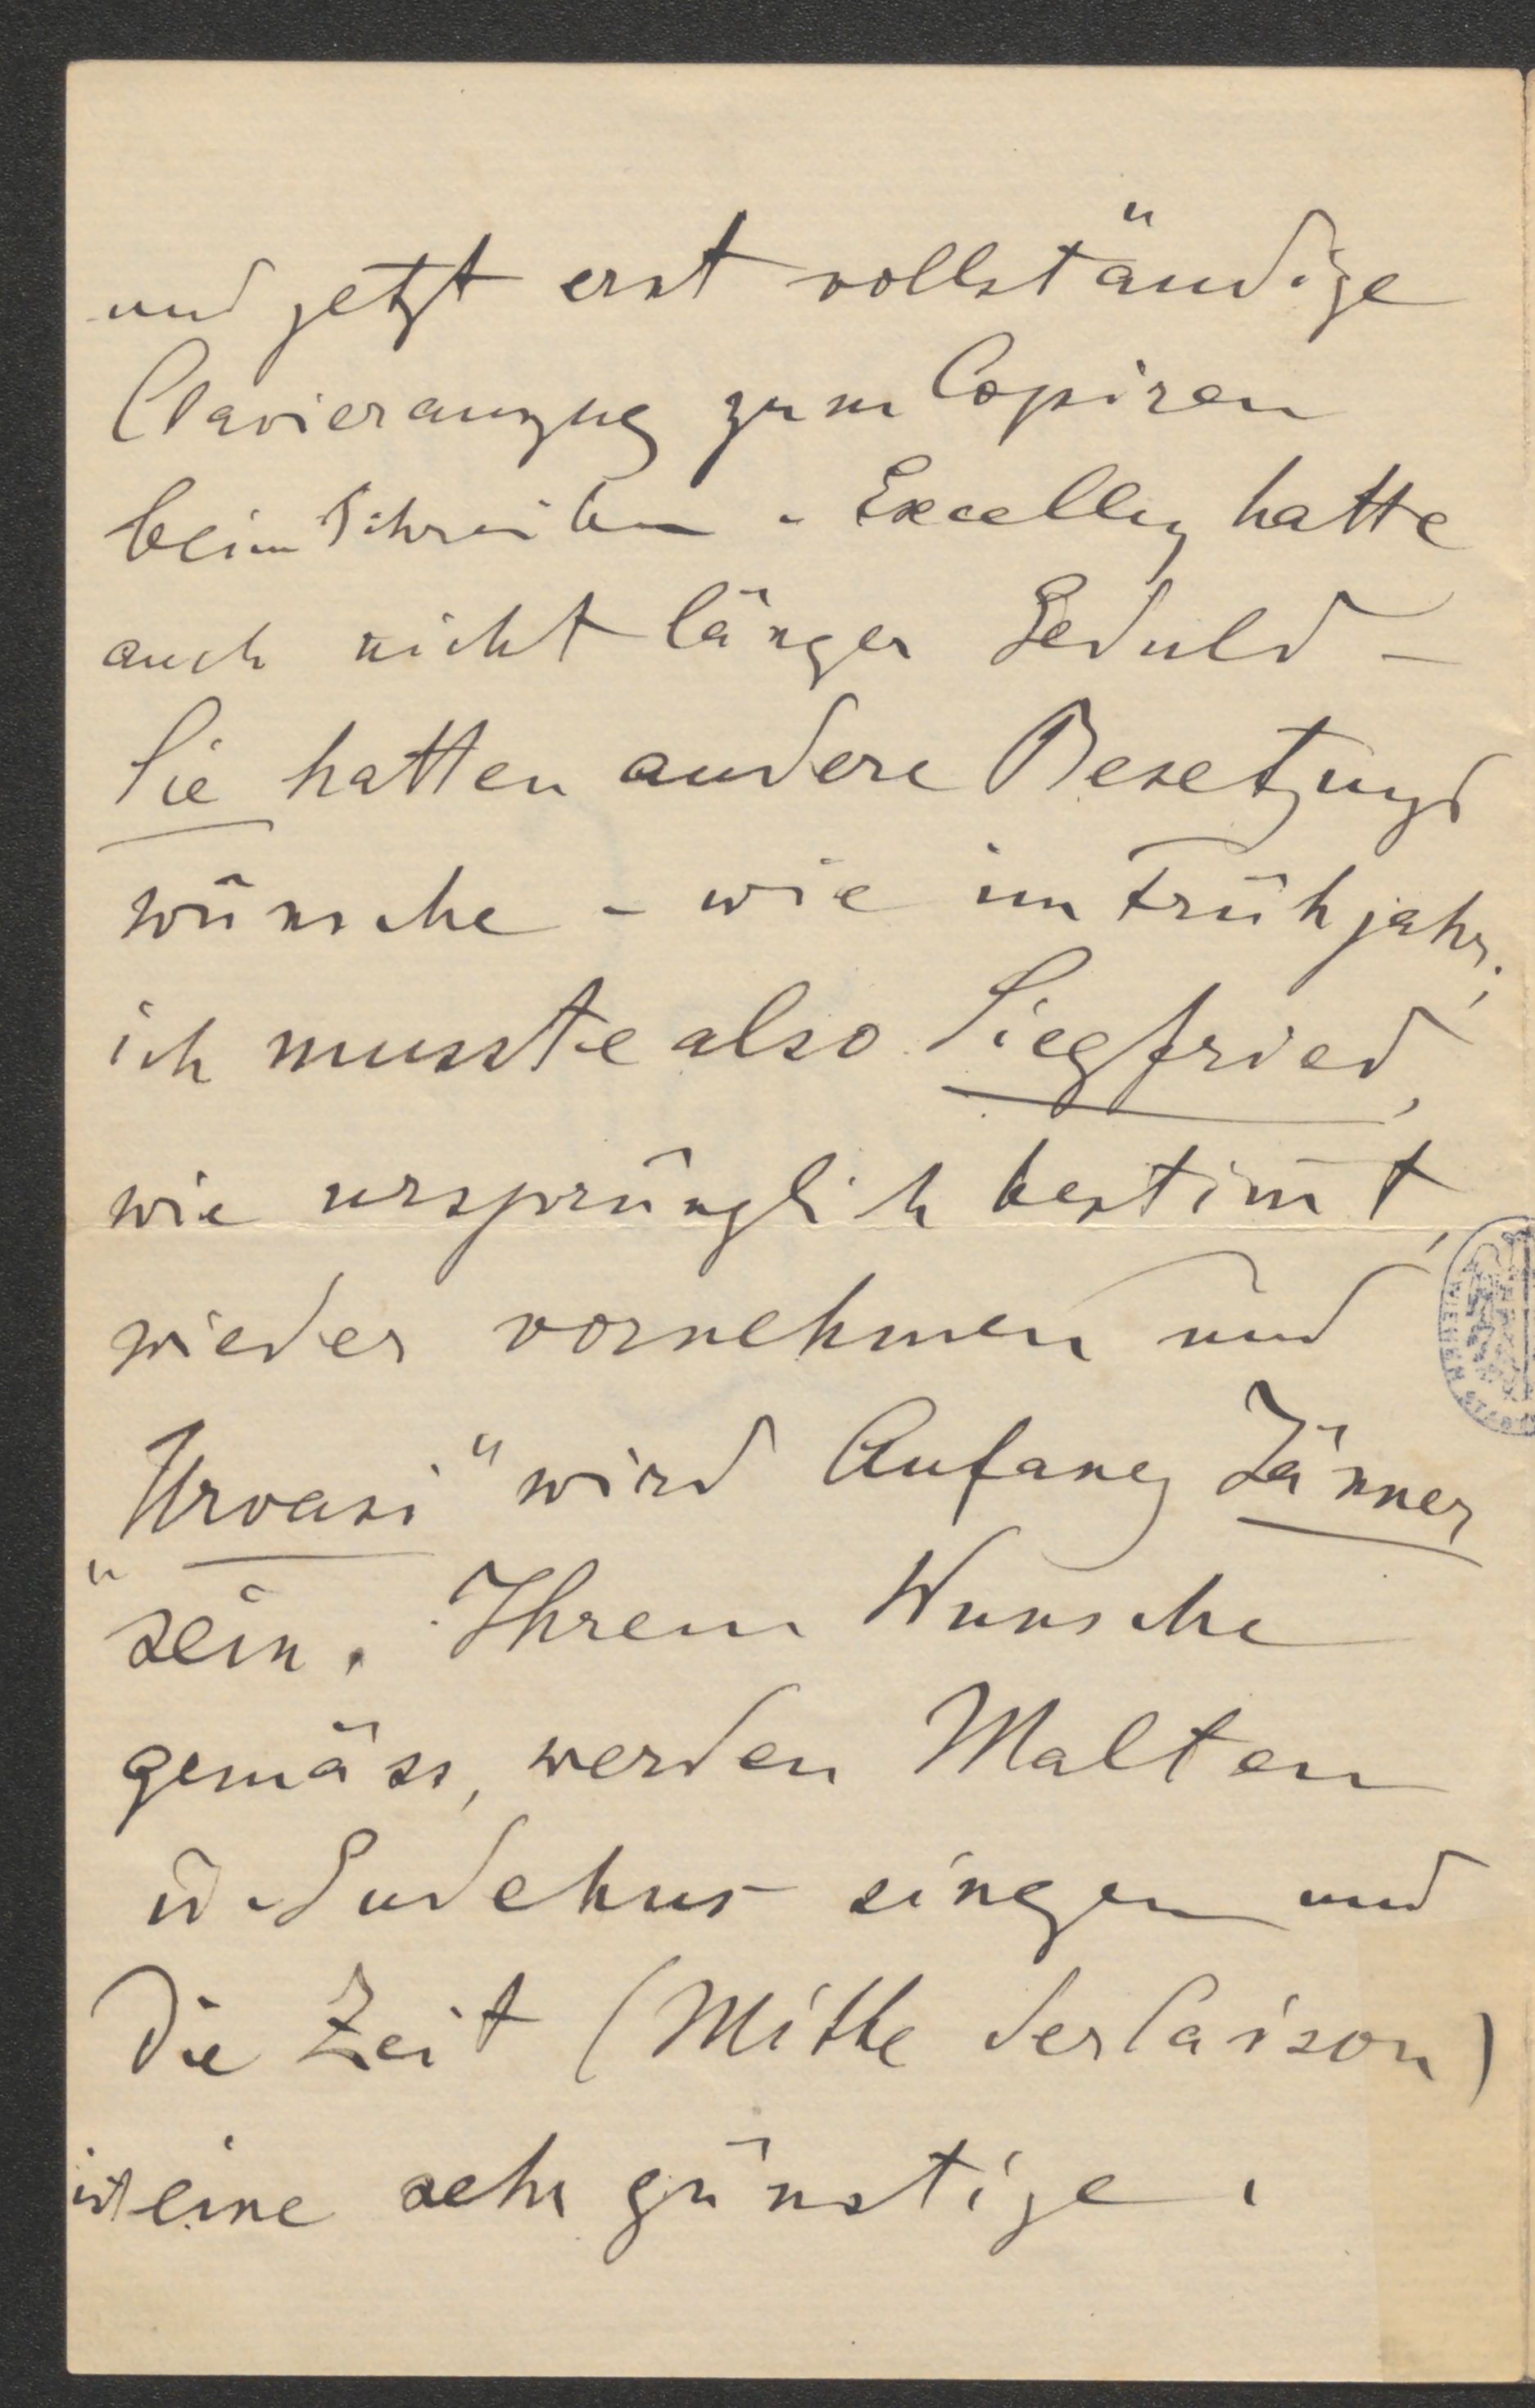 und jetzt erst vollständige
Clavierauszug zum Copiren
beim Schreiben - Excellenz hatte
auch nicht länger Geduld -
Sie hatten andere Besetzungs
wünsche - wie im Frühjahr,
ich musste also Siegfried,
wie ursprünglich bestim̄t,
wieder vornehmen und
„Urvasi“ wird Anfang Jänner
sein. Ihrem Wunsche
gemäss, werden Malten
u. Gudehus singen und
die Zeit (Mitte der Saison)
ist eine sehr günstige.
WIENER STADT